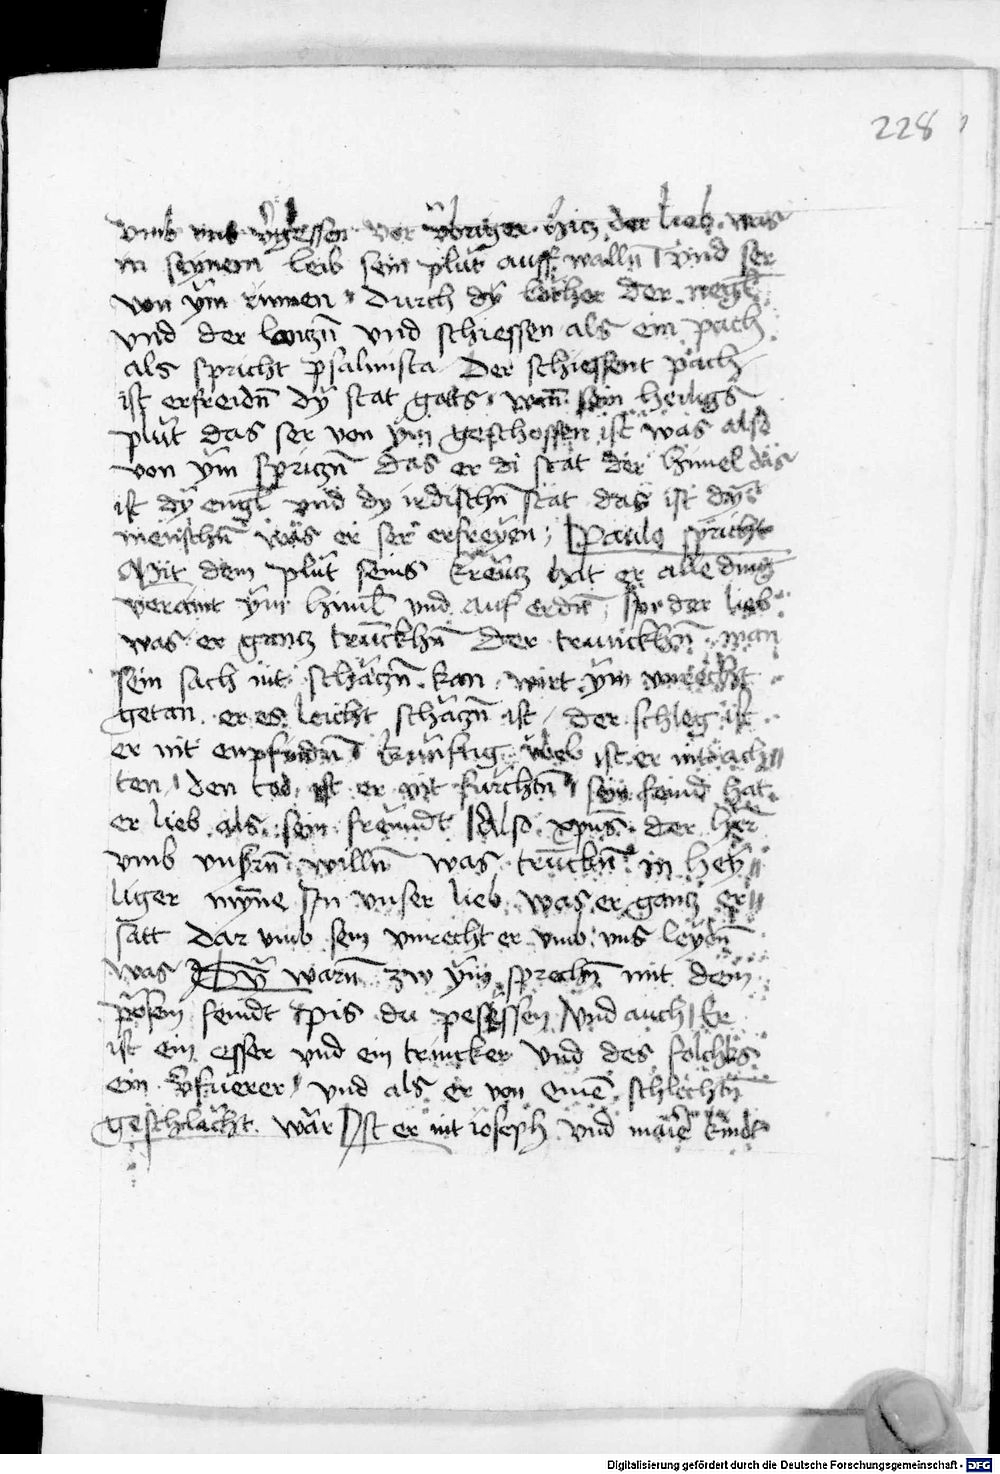 228
vmb vns v̄gessen vor v̈briger hicz der lieb was
in seynem leib sein plüt auff walln̄ vnd ser
von ÿm rinnen durch dÿ löcher der negl̄
vnd der lanczn̄ vnd schiessen als ein pach
als spricht psalmista Der schiessent pach
ist erfreidn̄ dÿ stat gotts wan̄ sein heiligs
plüt das ser von ÿm geschossen ist was also
von ÿm spriczn̄ das er di stat der himel das
ist dÿ engl̄ vnd dy irdischn̄ stat das ist dÿ
menschn̄ was er ser erfreÿen Paulo spricht
Mit dem plüt seins kreücz hat er alle ding
veraint ÿm himl̄ vnd auf erdn̄ vor der lieb
was er gancz trunckhn̄ Der trunckhn̄ man
sein sach nit schäczn̄ kan wirt ÿm vnrecht
getan er es leicht schäczn̄ ist der schleg ist
er nit enpfindn̄ kunftig vbel ist er nit ach
ten den tod ist er nit fürchtn̄ sein feind hat
er lieb als sein freundt Also xp̄us der her̄
vmb vnsrn̄ willn̄ was trunckn̄ in heÿ
liger mÿne In vnser lieb was er gancz er
satt Dar vmb sein vnrecht er vmb vns leÿdn̄
was Sÿ warn̄ zw ÿm sprechn̄ mit dem
posem feindt pis du pesessen Vnd auch Er
ist ein esser vnd ein trincker Vnd des folcks
ein v̄fuerer vnd als er von einē schlechtn̄
geschlächt wär Ist er nit ioseph vnd marie kindt
Digitalisierung gefördert durch die Deutsche Forschungsgemeinschaft - DFG